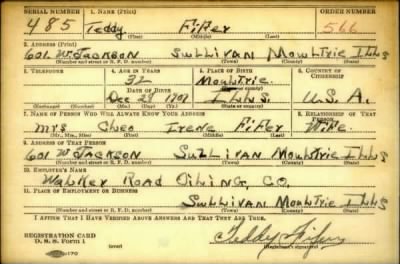 SERIAL NUMBER 1. NAME (Print) ORDER NUMBER
485 Teddy Fifer 566
(First) (Middle) (Last)
2. ADDRESS (Print)
601 W. Jackson Sullivan Mowltrie Ills
(Number and street or R. F. D. number) (Town) (County) (State)
3. TELEPHONE 4. AGE IN YEARS 5. PLACE OF BIRTH 6. COUNTRY OF CITIZENSHIP
32 Mowltrie
DATE OF BIRTH (Town or county)
Dec 28 Ills. U.S.A.
(Exchange) (Number) (Mo.) (Day) (Yr.) (State or country)
7. NAME OF PERSON WHO WILL ALWAYS KNOW YOUR ADDRESS 8. RELATIONSHIP OF THAT PERSON
Mrs Cleo Irene Fifer Wife
(Mr., Mrs., Miss) (First) (Middle) (Last)
9. ADDRESS OF THAT PERSON
601 W Jackson Sullivan Mowltrie Ills
(Number and street or R. F. D. number) (Town) (County) (State)
10. EMPLOYER'S NAME
Walker Road Oiling, Co.
11. PLACE OF EMPLOYMENT OR BUSINESS
Sullivan Mowltrie Ills
(Number and street or R. F. D. number) (Town) (County) (State)
I AFFIRM THAT I HAVE VERIFIED ABOVE ANSWERS AND THAT THEY ARE TRUE.
REGISTRATION CARD
D. S. S. Form 1 (over) Teddy Fifer
(Registrant's signature)